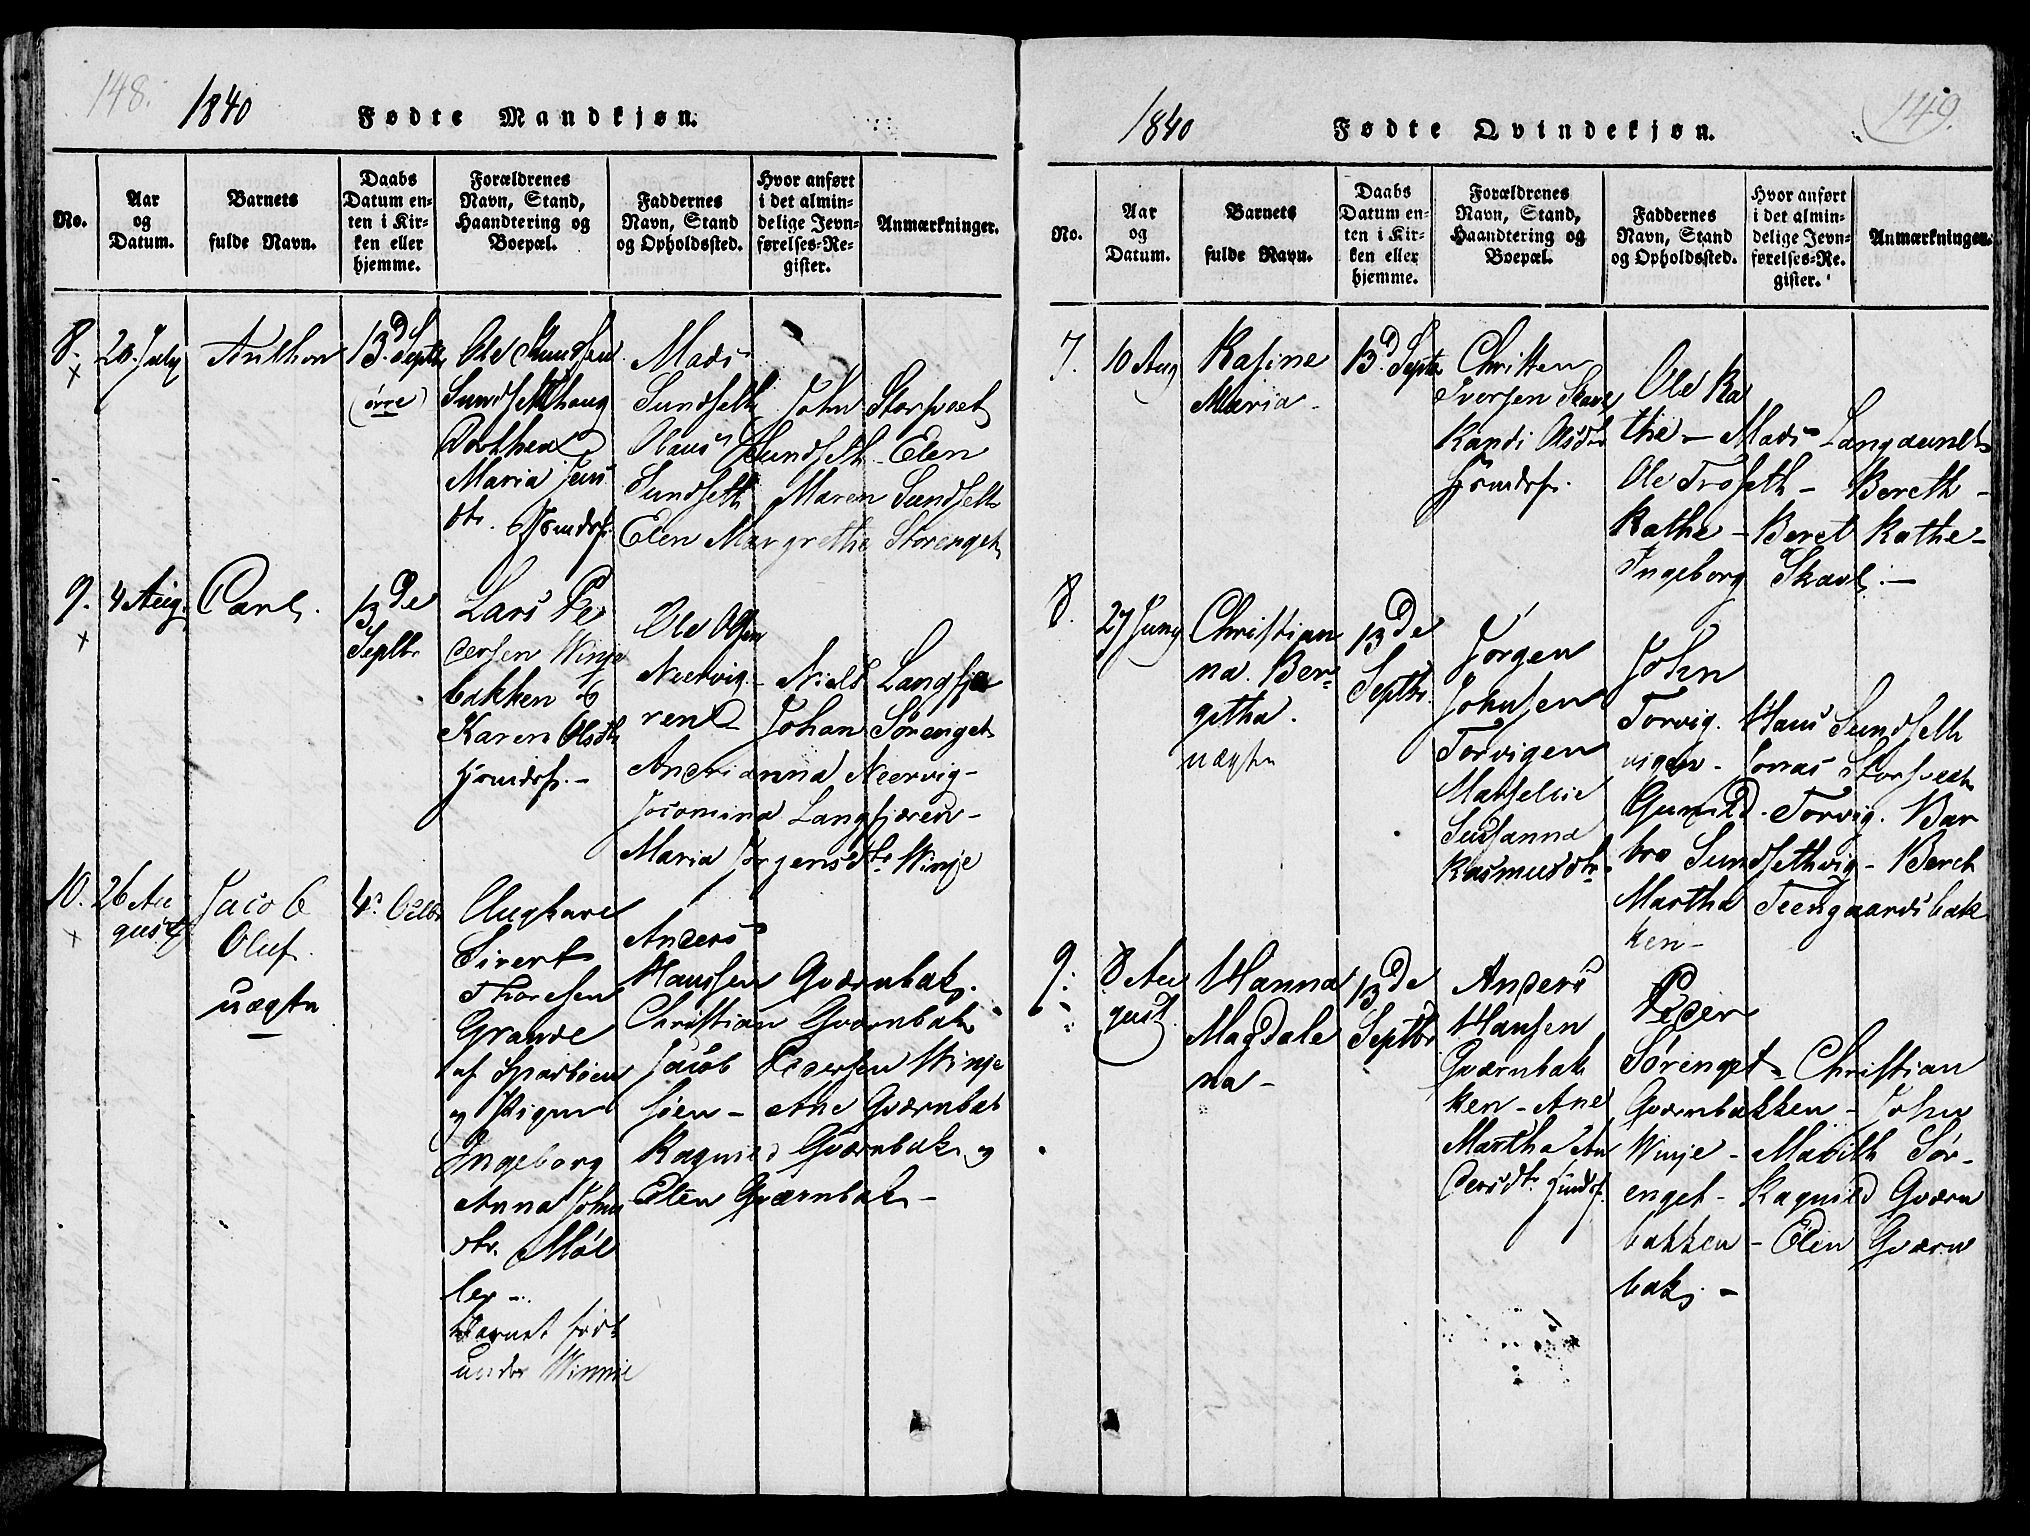 148.
1840
Fødte Mandkjøn.
No.
Aar
og
Datum.
Barnets
fulde Navn.
Daabs
Datum en-
ten i Kir-
ken eller
hjemme.
Forældrenes
Navn, Stand,
Haandtering og
Boepæl.
Faddernes
Navn, Stand
og Opholdssted.
Hvor anført
i det almin-
delige Jevn-
førelses-Re-
gister.
Anmærkninger.
8.
x
20. July
Anthon
13d Septb
Ole Knudsen
Sundsethhaug
Dorthea
Maria Jens
dtr.
Mads
Sundseth John Storhoet
Olaus Sundseth Elen
Sundseth Maren Sundseth
Elen Margrethe Storenget
9.
x
4 Aug.
Carl.
13de
Septbr
Lars Pe
dersen Winje
bakken &
Karen Olsdtr
Hjemdøbt. -
Ole Olsen
Neervig - Niels Langfjæ
ren Johan Sørenget
Andrianna Neervig -
Jocomina Langfjæren -
Maria Jørgensdtr Winje
10.
x
26 Au
gust
Jacob
Oluf.
uægte
4d Octbr
Ungkarl
Sivert
Thoresen
Grande
af Sparboen
og Pigen
Ingeborg
Anna Johns
dtr. Møl
ler -.
Barnet født
under Winnie
Anders
Hanssen Qværnbak.
Christian Qværnbak
Jacob Pedersen Winje
søen - Ane Qværnbak
Ragnild Qværnbak og
Elen Qværnbak -
149.
1840
Fødte Qvindekjøn.
No.
Aar
og
Datum.
Barnets
fulde Navn.
Daabs
Datum en-
ten i Kir-
ken eller
hjemme.
Forældrenes
Navn, Stand,
Haandtering og
Boepæl.
Faddernes
Navn, Stand
og Opholdssted.
Hvor anført
i det almin-
delige Jevn-
førelses-Re-
gister.
Anmærkninger.
7.
10 Aug
Rasine
Maria -
13d Septbr
Christen
Iversen Skavl
Randi Olsdtr
Hjemdøbt.
Ole Ra
the - Mads Langaunet
Ole Troseth - Bereth -
Rathe - Beret Rathe -
Ingeborg Skavl. -
8.
27 Juny
Christian
na. Ber-
getha.
uægte
13de
Septbr.
Jørgen
Johnsen
Torvigen
Susanna
Rasmusdtr.
John
Torvig. Hans Sundseth
vigen. Jonas Storhoet
Gunild Torvig. Bar
bro Sundsethvig - Beret
Martha Teengaardsbak
ken -
9.
8 Au
gust.
Hanna
Magdale
na -
13de
Septbr
Anders
Hansen
Qværnbak
ken - Ane
Martha An
dersdtr
Peder
Sørenget - Christian
Qværnbakken - John
Winje - Marith Sør-
enget - Ragnild Qværn
bakken - Elen Qværn
bak. -